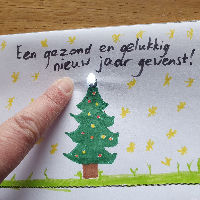 Een gezond en gelukkig
nieuw jaar gewenst!